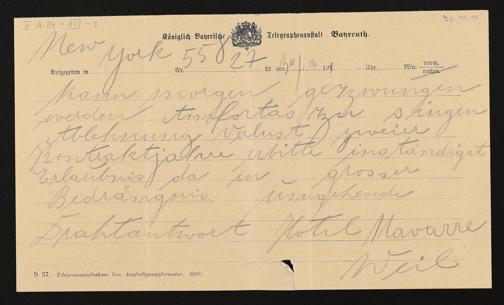 V A 34-XVI-1
30.11.11
Königlich Bayerische Telegraphenanstalt Bayreuth.
New York 558 27
Aufgegeben in Nr. den Uhr Min. vorm. nachm.
kann morgen gezwungen
werden Amfortas zu singen
Ablehnung Verlust zweier
Kontraktjahre erbitte inständigst
Erlaubnis da in grosser
Bedrängnis umgehende
Drahtantwort Hotel Navarre
Weil
D 57. Telegrammaufnahme- bzw. Ausfertigungsformular. 1910.